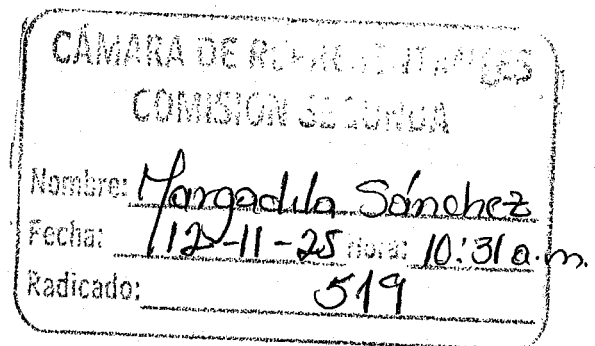 CÁMARA DE REPRESENTANTES
COMISIÓN SEGUNDA
Nombre: Sánchez
Fecha: 12-11-25 Hora: 10:31 a.m.
Radicado: 519